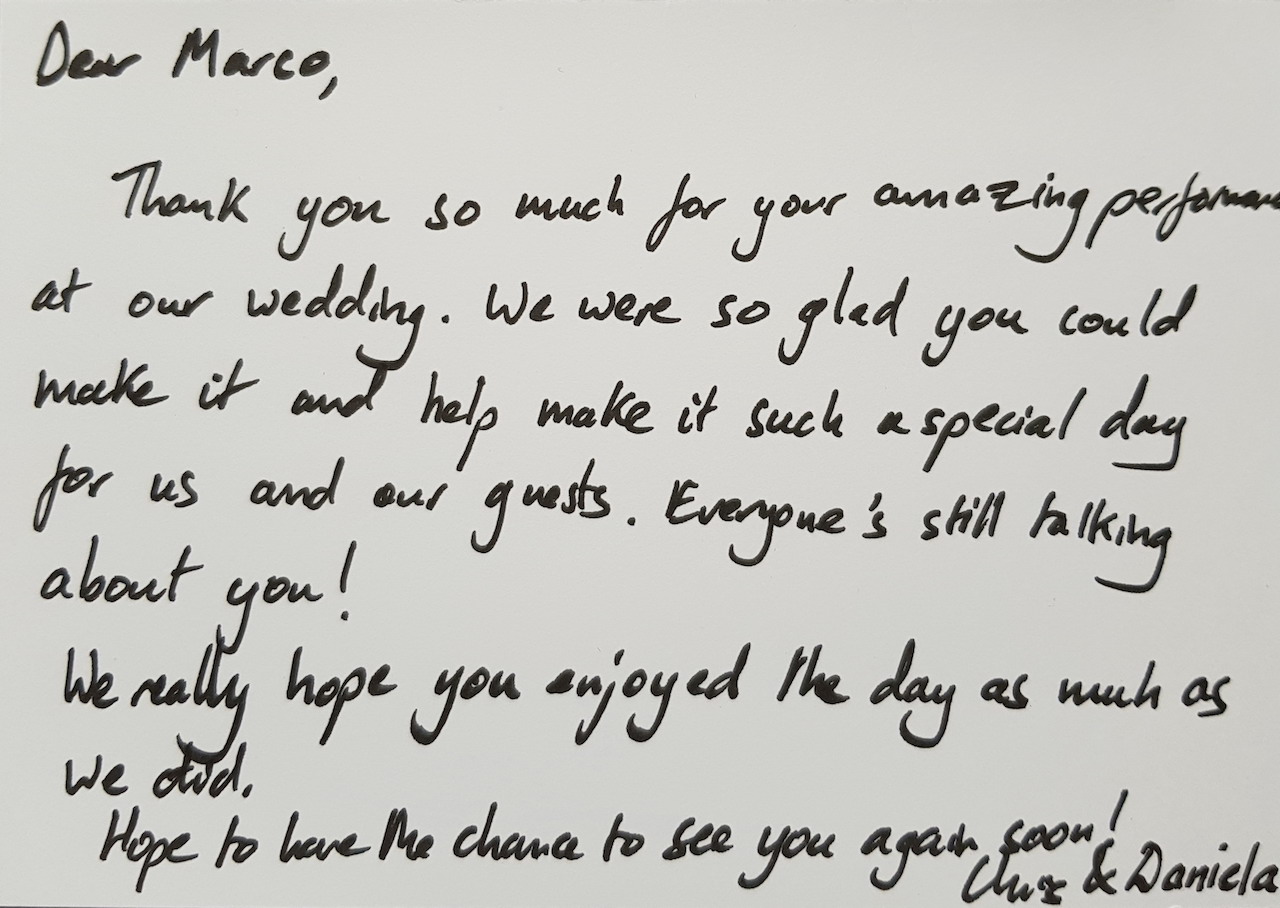 Dear Marco,
Thank you so much for your amazing performance
at our wedding. We were so glad you could
make it and help make it such a special day
for us and our guests. Everyone's still talking
about you!
We really hope you enjoyed the day as much as
we did.
Hope to have the chance to see you again soon!
Chris & Daniela